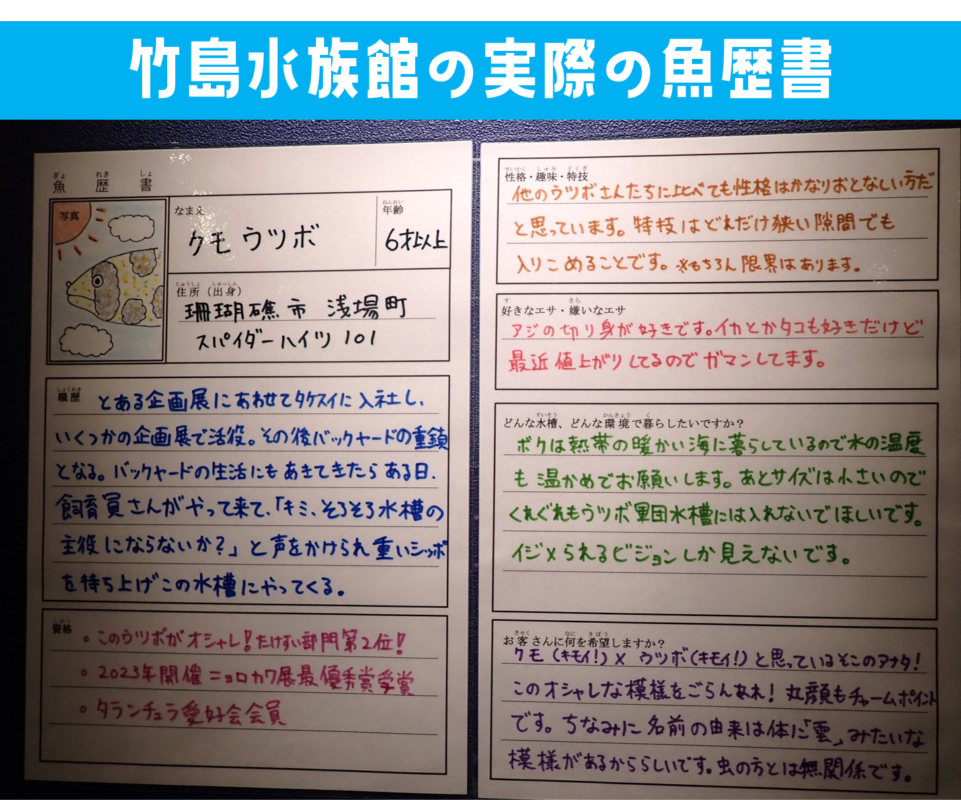 竹島水族館の実際の魚歴書
ぎょ れき しょ
魚 歴 書
写真
なまえ
クモウツボ
ねんれい
年齢
6才以上
じゅうしょ しゅっしん
住所(出身)
珊瑚礁市 浅場町
スパイダーハイツ101
しょくれき
職歴
とある企画展にあわせてタケスイに入社し、
いくつかの企画展で活役。その後バックヤードの重鎮
となる。バックヤードの生活にもあきてきたらある日、
飼育員さんがやって来て、「キミ、そろそろ水槽の
主役にならないか?」と声をかけられ重いシッポ
を持ち上げこの水槽にやってくる。
しかく
資格
。このウツボがオシャレ!たけすい部門第2位!
。2023年開催ニョロカワ展最優秀賞受賞
。タランチュラ愛好会会員
せいかく しゅみ とくぎ
性格・趣味・特技
他のウツボさんたちに比べても性格はかなりおとなしい方だ
と思っています。特技はどれだけ狭い隙間でも
入りこめることです。※もちろん限界はあります。
す きら
好きなエサ・嫌いなエサ
アジの切り身が好きです。イカとかタコも好きだけど
最近値上がりしてるのでガマンしてます。
すいそう かんきょう く
どんな水槽、どんな環境で暮らしたいですか?
ボクは熱帯の暖かい海に暮らしているので水の温度
も温かめでお願いします。あとサイズは小さいので
くれぐれもウツボ軍団水槽には入れないでほしいです。
イジメられるビジョンしか見えないです。
きゃく なに きぼう
お客さんに何を希望しますか?
クモ(キモイ!)×ウツボ(キモイ!)と思っているそこのアナタ!
このオシャレな模様をごらんあれ!丸顔もチャームポイント
です。ちなみに名前の由来は体に「雲」みたいな
模様があるかららしいです。虫の方とは無関係です。